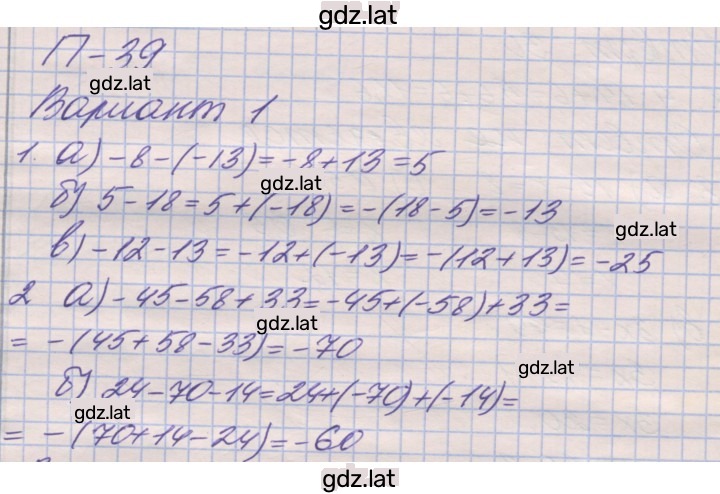 gdz.lat
П-39
gdz.lat
Вариант 1
1. а) -8-(-13)=-8+13=5
gdz.lat
б) 5-18=5+(-18)=-(18-5)=-13
gdz.lat
в) -12-13=-12+(-13)=-(12+13)=-25
2 а) -45-58+33=-45+(-58)+33=
gdz.lat
= -(45+58-33)=-70
gdz.lat
б) 24-70-14=24+(-70)+(-14)=
gdz.lat
= -(70+14-24)=-60
gdz.lat